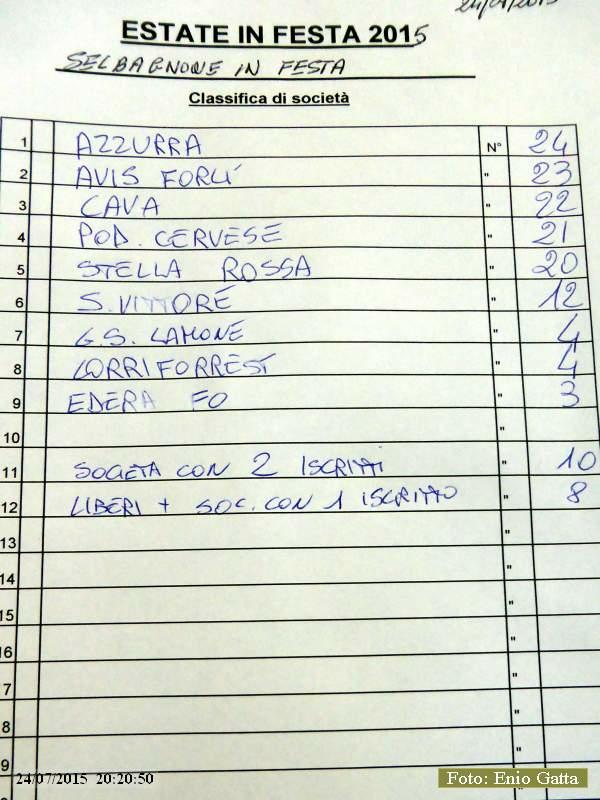 24/07/2015
ESTATE IN FESTA 2015
SELBAGNONE IN FESTA
Classifica di società
1 AZZURRA N° 24
2 AVIS FORLÍ " 23
3 CAVA " 22
4 POD. CERVESE " 21
5 STELLA ROSSA " 20
6 S. VITTORE " 12
7 G.S. LAMONE " 4
8 CORRIFORREST " 4
9 EDERA FO " 3
10 "
11 SOCIETÀ CON 2 ISCRITTI " 10
12 LIBERI + SOC. CON 1 ISCRITTO " 8
13 "
14 "
15 "
16 "
7 "
8 "
9 "
24/07/2015 20:20:50
Foto: Enio Gatta